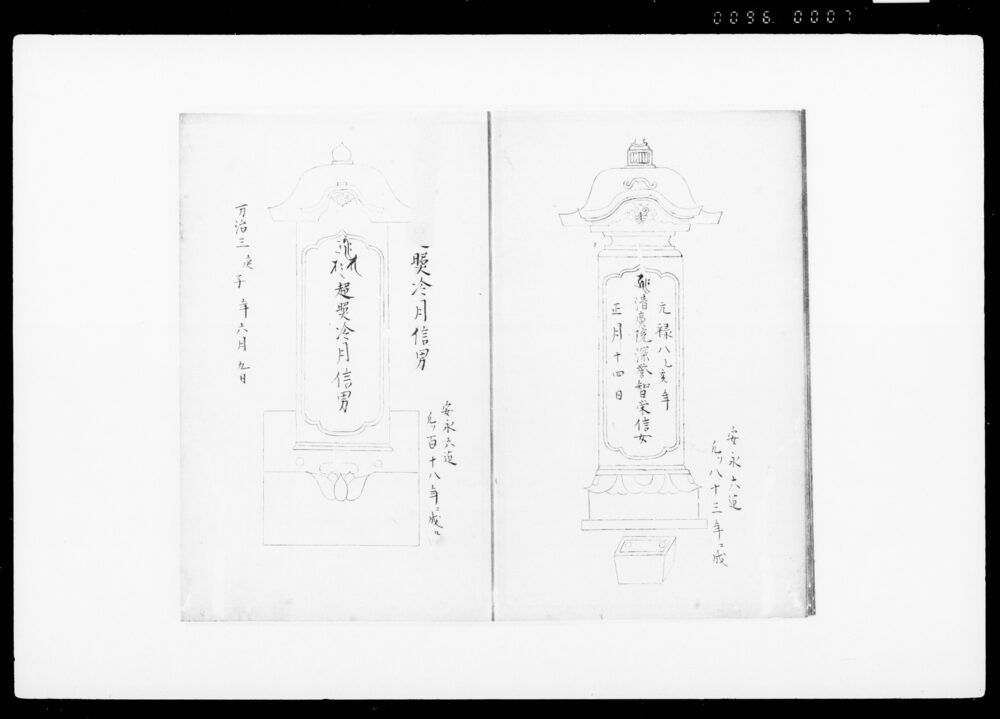 0096 0007
元禄八乙亥年
清廣院深誉智栄信女
正月十四日
安永六迄
凡ソ八十三年ニ成
一 照冷月信男
超照冷月信男
万治三庚子年六月九日
安永六迄
凡ソ百十八年ニ成ル